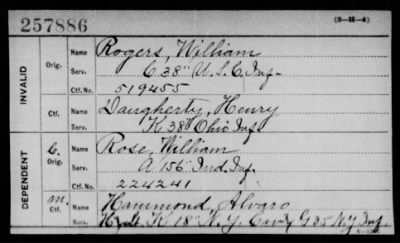 257886
(3-H-4)
INVALID
Orig.
Name Rogers, William
Serv. C 38" U.S.C. Inf.
Ctf. No. 519455
Ctf.
Name Daugherty, Henry
Serv. K 38" Ohio Inf.
DEPENDENT
C. Orig.
Name Rose, William
Serv. A 156" Ind. Inf.
Ctf. No. 224241
m. Ctf.
Name Hammond, Alvaro
K 18" N.Y. Cav. & G 35 N.Y. Inf.